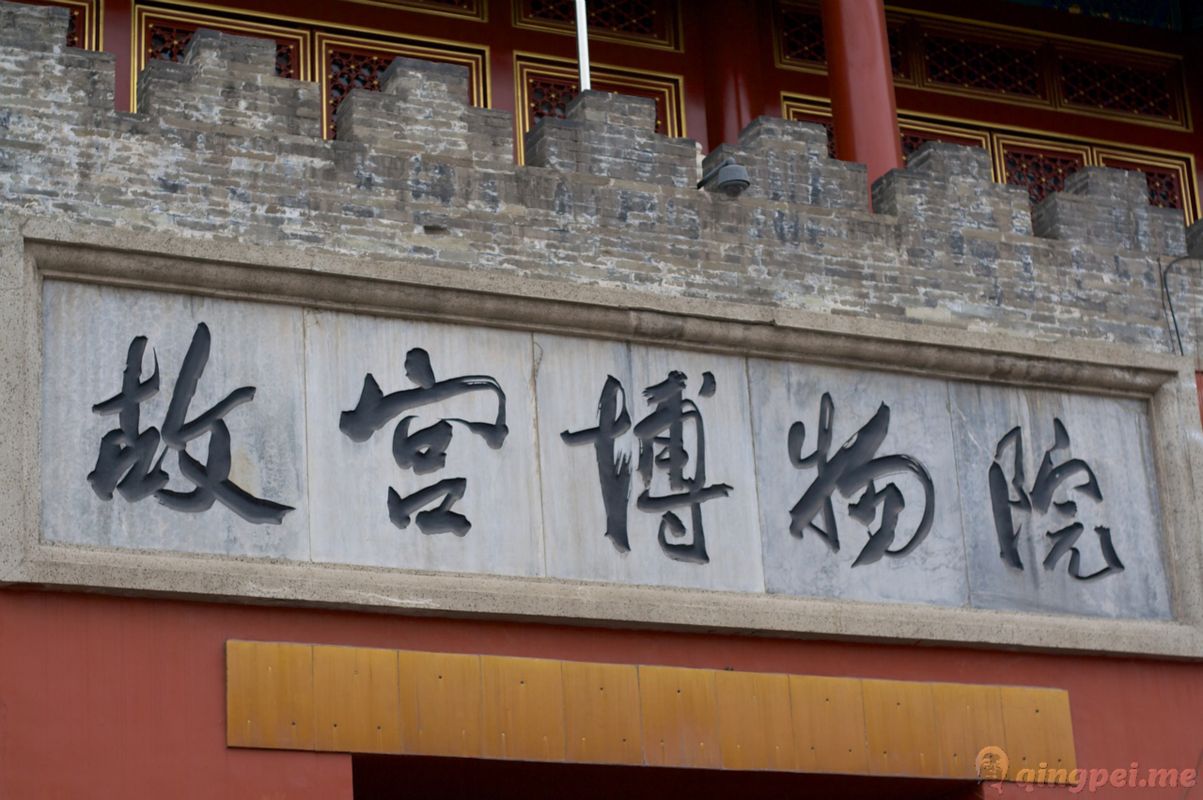 故宫博物院
qingpei.me